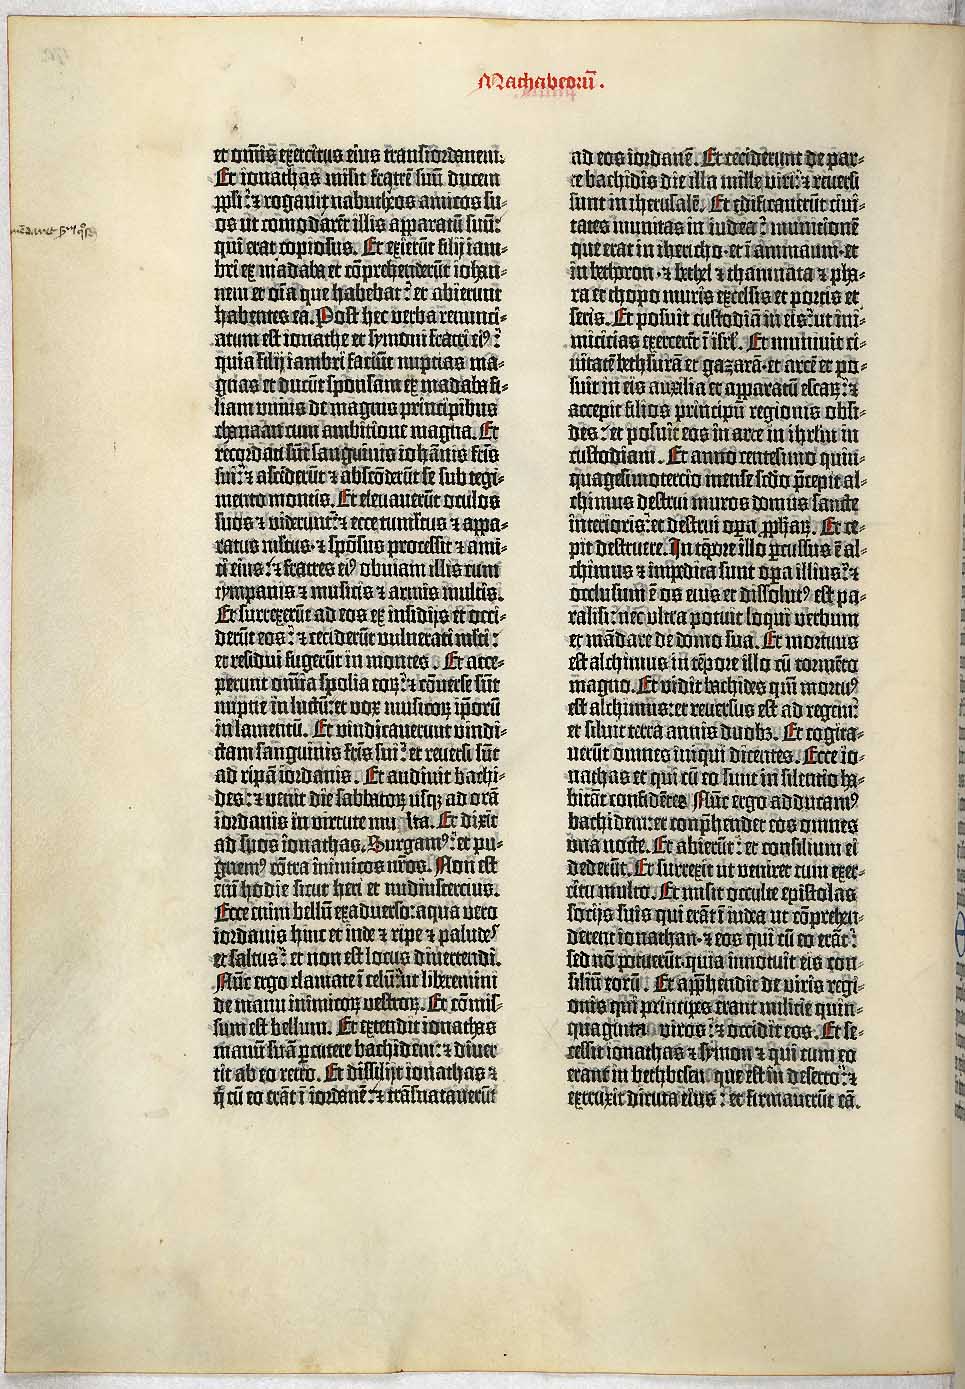 Machabeorū.
et om̄is exercitus eius trans iordanem.
Et ionathas misit fratrē suū ducem
ppl̄i: ⁊ rogavit nabutheos amicos su-
os ut comodarēt illis apparatū suū:
qui erat copiosus. Et exierūt filij iam-
bri ex madaba et cōprehenderūt iohan-
nem et oīa que habebat: et abierunt
habentes ea. Post hec verba renunci-
atum est ionathe et symoni fratri eiꝰ:
quia filij iambri faciūt nuptias ma-
gnas et ducūt sponsam ex madaba fi-
liam unius de magnis principibus
chanaan cum ambitione magna. Et
recordati sūt sanguinis iohānis fr̄is
sui: ⁊ ascēderūt ⁊ abscōderūt se sub tegi-
mento montis. Et elevaverūt oculos
suos ⁊ viderunt: ⁊ ecce tumultus ⁊ appa-
ratus multus· ⁊ spōsus processit ⁊ ami-
ci eius: ⁊ fratres eiꝰ obviam illis cum
tympanis ⁊ musicis ⁊ armis multis.
Et surrexerūt ad eos ex insidijs et occi-
derūt eos: ⁊ ceciderūt vulnerati mlti:
et residui fugerūt in montes. Et acce-
perunt omnia spolia eoꝝ: ⁊ cōverse sūt
nuptie in luctū: et vox musicoꝝ ip̄orū
in lamentū. Et vindicaverunt vindi-
ctam sanguinis fr̄is sui: et reversi sūt
ad ripā iordanis. Et audivit bachi-
des: ⁊ venit die sabbatoꝝ usqꝫ ad orā
iordanis in virtute mu lta. Et dixit
ad suos ionathas. Surgamꝰ: et pu-
gnemꝰ cōtra inimicos nr̄os. Non est
enī hodie sicut heri et nudiustercius.
Ecce enim bellū ex adverso: aqua vero
iordanis hinc et inde ⁊ ripe ⁊ paludes
et saltus: et non est locus divertendi.
Nūc ergo clamate ī celū: ut liberemini
de manu inimicoꝝ vestroꝝ. Et cōmis-
sum est bellum. Et extendit ionathas
manū suā ꝑcutere bachidem: ⁊ diver
tit ab eo retro. Et dissilijt ionathas ⁊
q̄ cū eo erāt ī iordanē: ⁊ trāsnataverūt
ad eos iordanē. Et ceciderunt de par-
te bachidis die illa mille viri: ⁊ reversi
sunt in iherusalē. Et edificaverūt civi-
tates munitas in iudea: municionē
que erat in ihericho· et ī ammaum· et
in bethoron· ⁊ bethel ⁊ thamnata ⁊ pha-
ra et thopo muris excelsis et portis et
seris. Et posuit custodiā in eis: ut ini-
micitias exercerēt ī isrl̄. Et munivit ci-
vitatē bethsurā et gazarā· et arcē et po-
suit in eis auxilia et apparatū escaꝝ: ⁊
accepit filios principū regionis obsi-
des: et posuit eos in arce in ihrlm̄ in
custodiam. Et anno centesimo quin-
quagesimotercio mense sc̄do p̄cepit al-
chimus destrui muros domus sancte
interioris: et destrui oꝑa ꝓphaꝝ. Et ce-
pit destruere. In tēpore illo ꝑcussus ē al-
chimus ⁊ impedita sunt oꝑa illius: ⁊
occlusum ē os eius et dissolutꝰ est pa-
ralisi: nec ultra potuit loqui verbum
et mādare de domo sua. Et mortuus
est alchimus in tēpore illo cū tormēto
magno. Et vidit bachides qm̄ mortuꝰ
est alchimus: et reversus est ad regem:
et siluit terra annis duobꝫ. Et cogita-
verūt omnes iniqui dicentes. Ecce io-
nathas et qui cū eo sunt in silentio ha-
bitāt confidētes. Nūc ergo adducamꝰ
bachidem: et conp̄hendet eos omnes
una nocte. Et abierūt: et consilium ei
dederūt. Et surrexit ut veniret cum exer-
citu multo. Et misit occulte epistolas
socijs suis qui erāt ī iudea ut cōprehen-
derent ionathan· ⁊ eos qui cū eo erāt:
sed nō potuerūt· quia innotuit eis con-
siliū eorū. Et app̄hendit de viris regi-
onis qui principes erant militie quin-
quaginta viros: ⁊ occidit eos. Et se-
cessit ionathas ⁊ symon ⁊ qui cum eo
erant in bethbesen que est in deserto: ⁊
extruxit diruta eius: et firmaverūt eā.